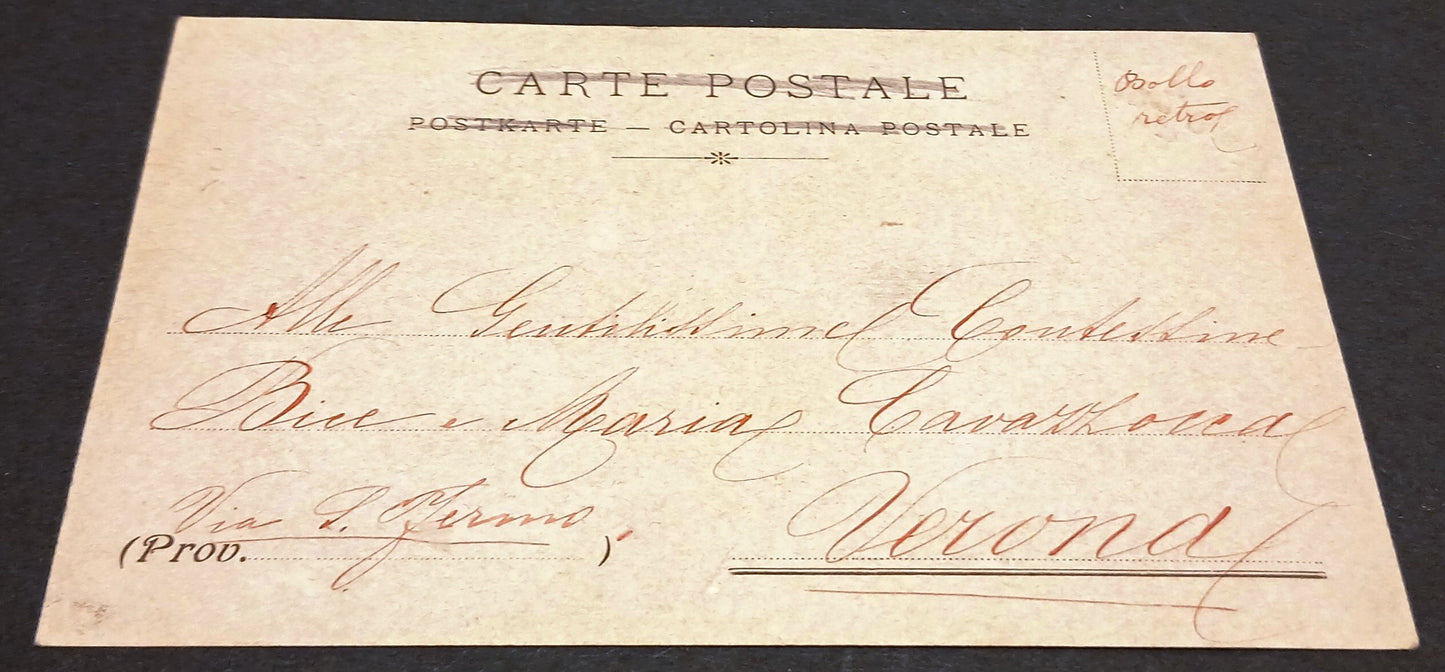 CARTE POSTALE
POSTKARTE — CARTOLINA POSTALE
Bollo
retro
Alle Gentilissime Contessine
Bice e Maria Cavazzocca
Via S. Fermo
(Prov. )
Verona